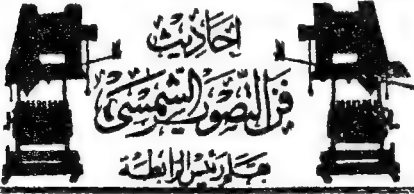 احاديث
فن التصوير الشمسى
رئيس الرابطة